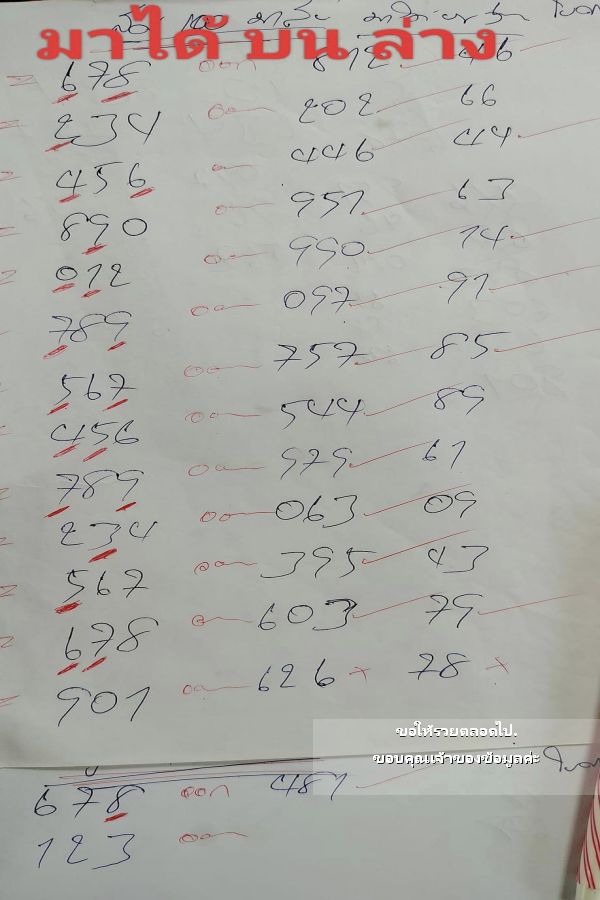 มาได้ บน ล่าง
678 ออก 812 46
234 ออก 202 66
456 ออก 446 44
890 ออก 951 63
012 ออก 990 14
789 ออก 097 91
567 ออก 757 85
456 ออก 544 89
789 ออก 979 61
234 ออก 063 09
567 ออก 395 43
678 ออก 603 79
901 ออก 626 × 78 ×
ขอให้รวยตลอดไป.
ขอบคุณเจ้าของข้อมูลค่ะ
678 ออก 481
123 ออก